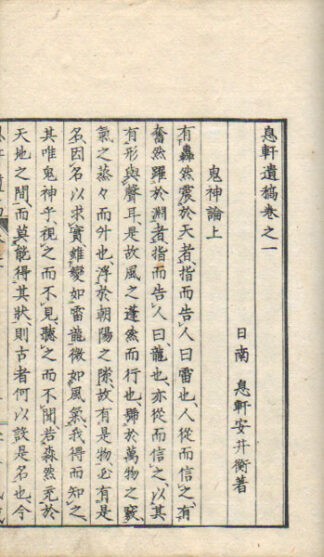 息軒遺稿卷之一
日南 息軒安井衡著
鬼神論上
有轟然震於天者、指而告人曰雷也、人從而信之、有
奮然躍於淵者、指而告人曰龍也、亦從而信之、以其
有形與聲耳是故風之蓬然而行也、號於萬物之竅、
氣之蒸々而外也、浮於朝陽之隙、故有是物必有是
名、因名以求實、雖變如雷龍微如風氣、我得而知之、
其唯鬼神乎、視之而不見、聽之而不聞、若淼然充於
天地之間、而莫能得其狀、則古者何以設是名也、今